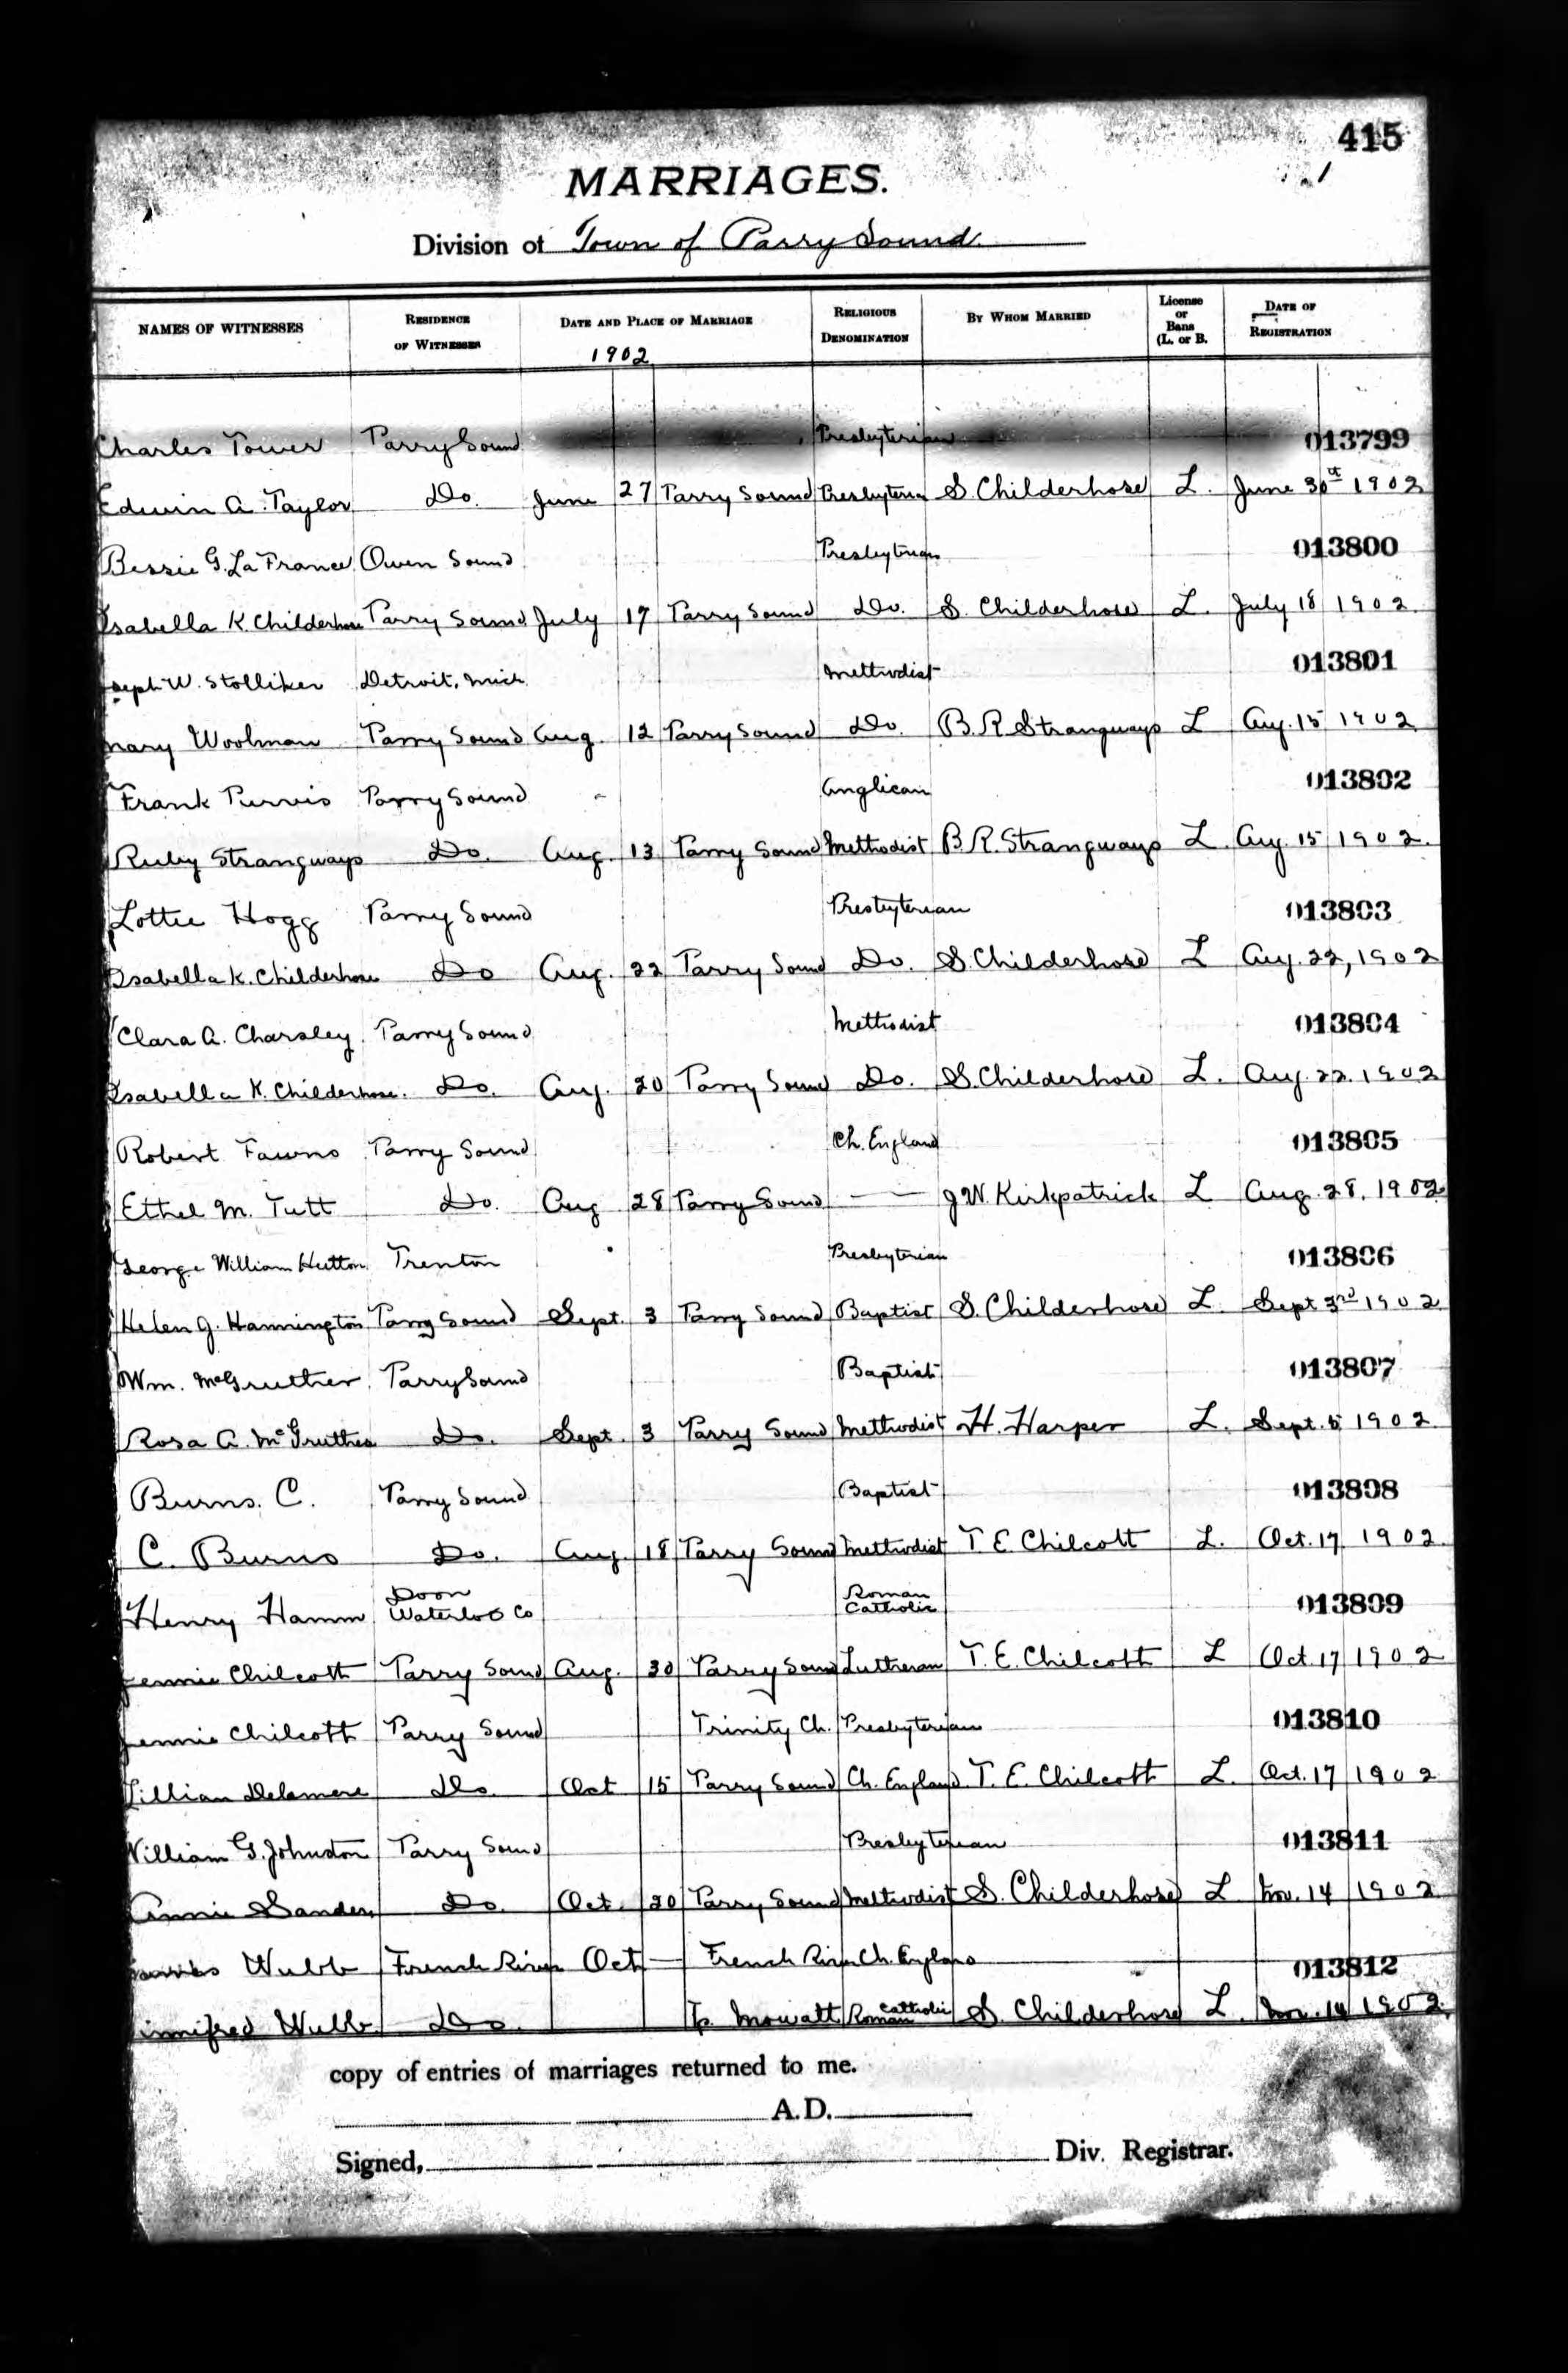 415
MARRIAGES.
Division of Town of Parry Sound.
NAMES OF WITNESSES RESIDENCE OF WITNESSES DATE AND PLACE OF MARRIAGE RELIGIOUS DENOMINATION BY WHOM MARRIED License or Bans (L. or B. DATE OF REGISTRATION
1902
Charles Tower Parry Sound Presbyterian 013799
Edwin A. Taylor Do. June 27 Parry Sound Presbyterian S. Childerhose L. June 30th 1902
Bessie G. La France Owen Sound Presbyterian 013800
Isabella K. Childerhose Parry Sound July 17 Parry Sound Do. S. Childerhose L. July 18 1902.
Joseph W. Stolliker Detroit, Mich Methodist 013801
Mary Woolman Parry Sound Aug. 12 Parry Sound Do. B. R. Strangways L Aug. 15 1902
Frank Purvis Parry Sound Anglican 013802
Ruby Strangways Do. Aug. 13 Parry Sound Methodist B. R. Strangways L. Aug. 15 1902.
Lottie Hogg Parry Sound Presbyterian 013803
Isabella K. Childerhose Do Aug. 22 Parry Sound Do. S. Childerhose L Aug. 22, 1902
Clara A. Charsley Parry Sound Methodist 013804
Isabella K. Childerhose. Do. Aug. 20 Parry Sound Do. S. Childerhose L. Aug. 22. 1902
Robert Fawns Parry Sound Ch. England 013805
Ethel M. Tutt Do. Aug 28 Parry Sound — J. W. Kirkpatrick L Aug. 28, 1902
George William Hutton Trenton Presbyterian 013806
Helen J. Hannington Parry Sound Sept. 3 Parry Sound Baptist S. Childerhose L. Sept 3rd 1902
Wm. McGruther Parry Sound Baptist 013807
Rosa A. McGruther Do. Sept. 3 Parry Sound Methodist H. Harper L. Sept. 5 1902
Burns. C. Parry Sound Baptist 013808
C. Burns Do. Aug. 18 Parry Sound Methodist T. E. Chilcott L. Oct. 17 1902.
Henry Hamm Doon Waterloo Co Roman Catholic 013809
Jennie Chilcott Parry Sound Aug. 30 Parry Sound Lutheran T. E. Chilcott L Oct. 17 1902
Jennie Chilcott Parry Sound Trinity Ch. Presbyterian 013810
Lillian Delamere Do. Oct 15 Parry Sound Ch. England T. E. Chilcott L. Oct. 17 1902
William G. Johnston Parry Sound Presbyterian 013811
Annie Sanders Do. Oct. 20 Parry Sound Methodist S. Childerhose L Nov. 14 1902
Wubb French River Oct — French River Ch. England 013812
Winnifred Wubb Do. Tp. Mowatt Roman Catholic S. Childerhose L. Nov. 14 1902.
copy of entries of marriages returned to me.
A.D.
Signed, Div. Registrar.